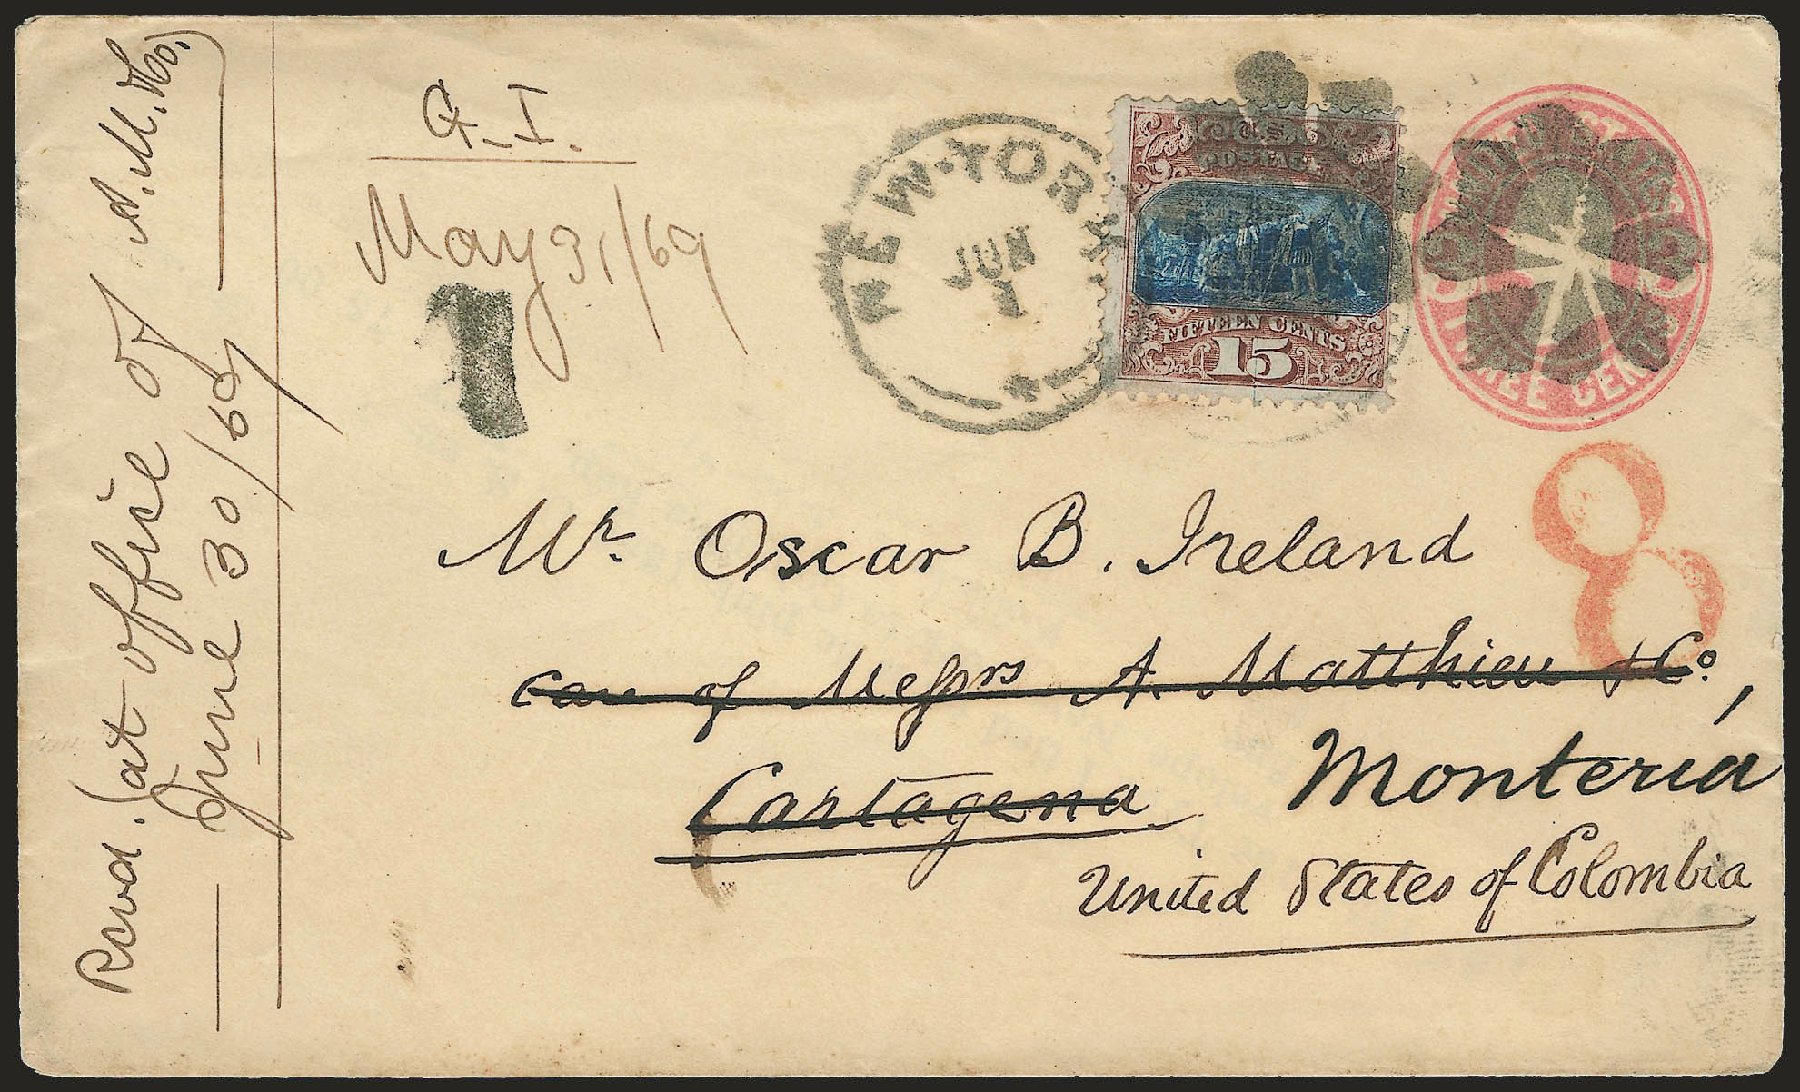 Recvd. (at office of A. M. & Co.)
June 30/69
G. I.
May 31/69
NEW-YORK
JUN
1
U.S.
POSTAGE
FIFTEEN CENTS
15
THREE CEN
8
Mr. Oscar B. Ireland
Care of Messrs A. Matthieu & Co.,
Cartagena Monteria
United States of Colombia